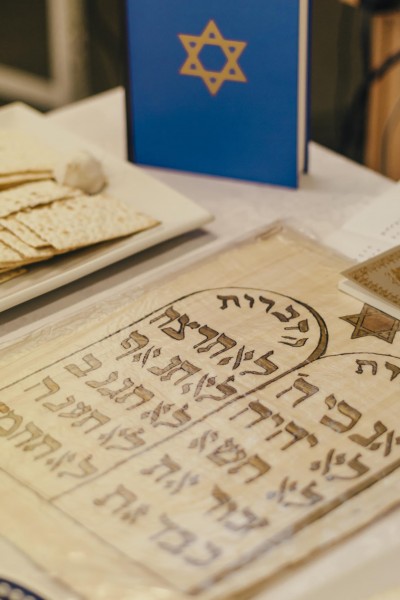 אנכי ה
לא יהיה
לא תשא
זכור את
כבד את
הדברות
לא תרצח
לא תנאף
לא תגנב
לא תענה
לא תחמד